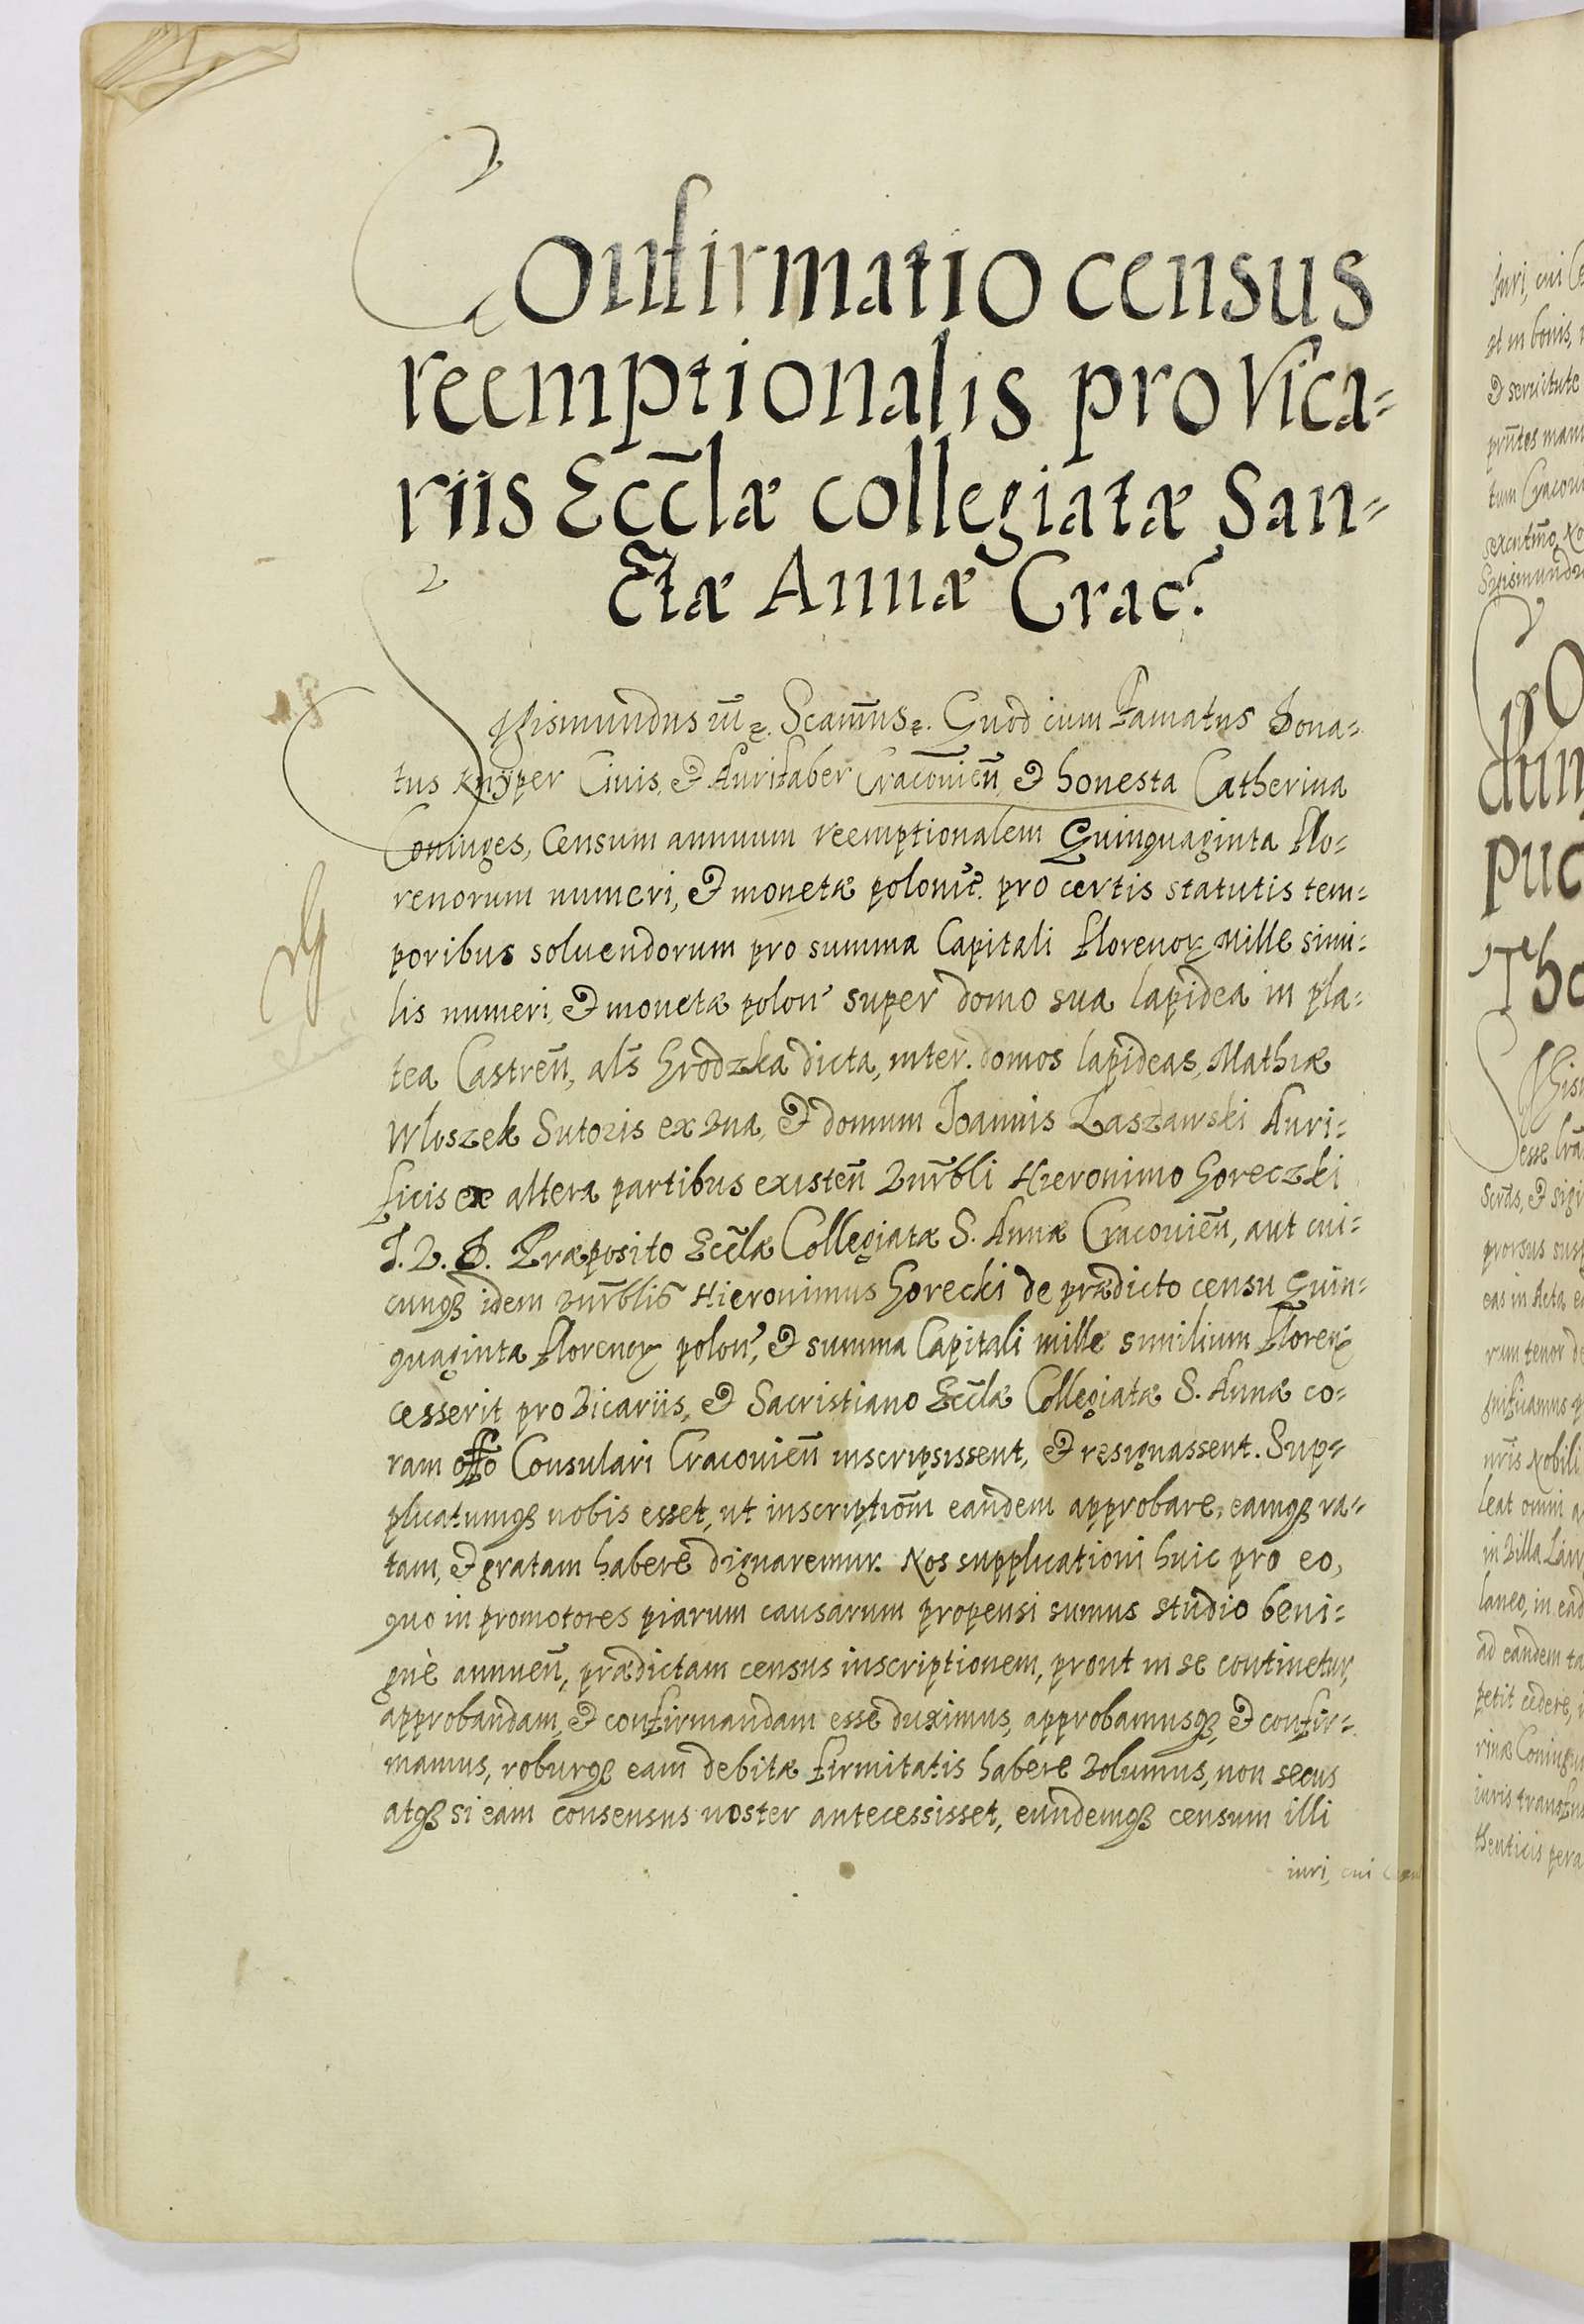 Confirmatio census
reemptionalis pro Vica=
riis Eccl̃æ collegiatæ San=
ctæ Annæ Crac?
Sigismundus III etc. Scam̃us etc. Quod cum Famatus Dona=
tus Knÿper Ciuis, et Aurifaber Cracouien̄ et honesta Catherina
Coniuges, Censum annuum reemptionalem Quinquaginta Flo=
renorum numeri, et monetæ polonic̃. pro certis statutis tem=
poribus soluendorum pro summa Capitali Florenoꝝ Mille simi=
lis numeri, et monetæ polon̓ super domo sua lapidea in pla=
tea Castren̄, als̄ Grodzka dicta, inter domos lapideas, Mathiæ
Wloszek Sutoris ex una, et domum Ioannis Zaszawski Auri=
ficis ex altera partibus existen̄ Vnr̄bli Hieronimo Goreczki
I. V. D. Præposito Eccl̃æ Collegiatæ S. Annæ Cracouien̄, aut cui=
cunqꝫ idem Vnr̄blis Hieronimus Gorecki de prædicto censu Quin=
quaginta Florenoꝝ polon̓, et summa Capitali mille similium Florenoꝝ
cesserit pro Vicariis, et Sacristiano Eccl̃æ Collegiatæ S. Annæ co=
ram offo Consulari Cracouien̄ inscripsissent, et resignassent. Sup=
plicatumqꝫ nobis esset, ut inscriptiōm eandem approbare, eamqꝫ ra=
tam, et gratam habere dignaremur. Nos supplicationi huic pro eo,
quo in promotores piarum causarum propensi sumus studio beni=
gnè annuen̄, prædictam census inscriptionem, prout in se continetur,
approbandam, et confirmandam esse duximus, approbamusqꝫ, et confir=
mamus, roburqꝫ eam debitæ firmitatis habere Volumus, non secus
atqꝫ si eam consensus noster antecessisset, eundemqꝫ censum illi
iuri, cui